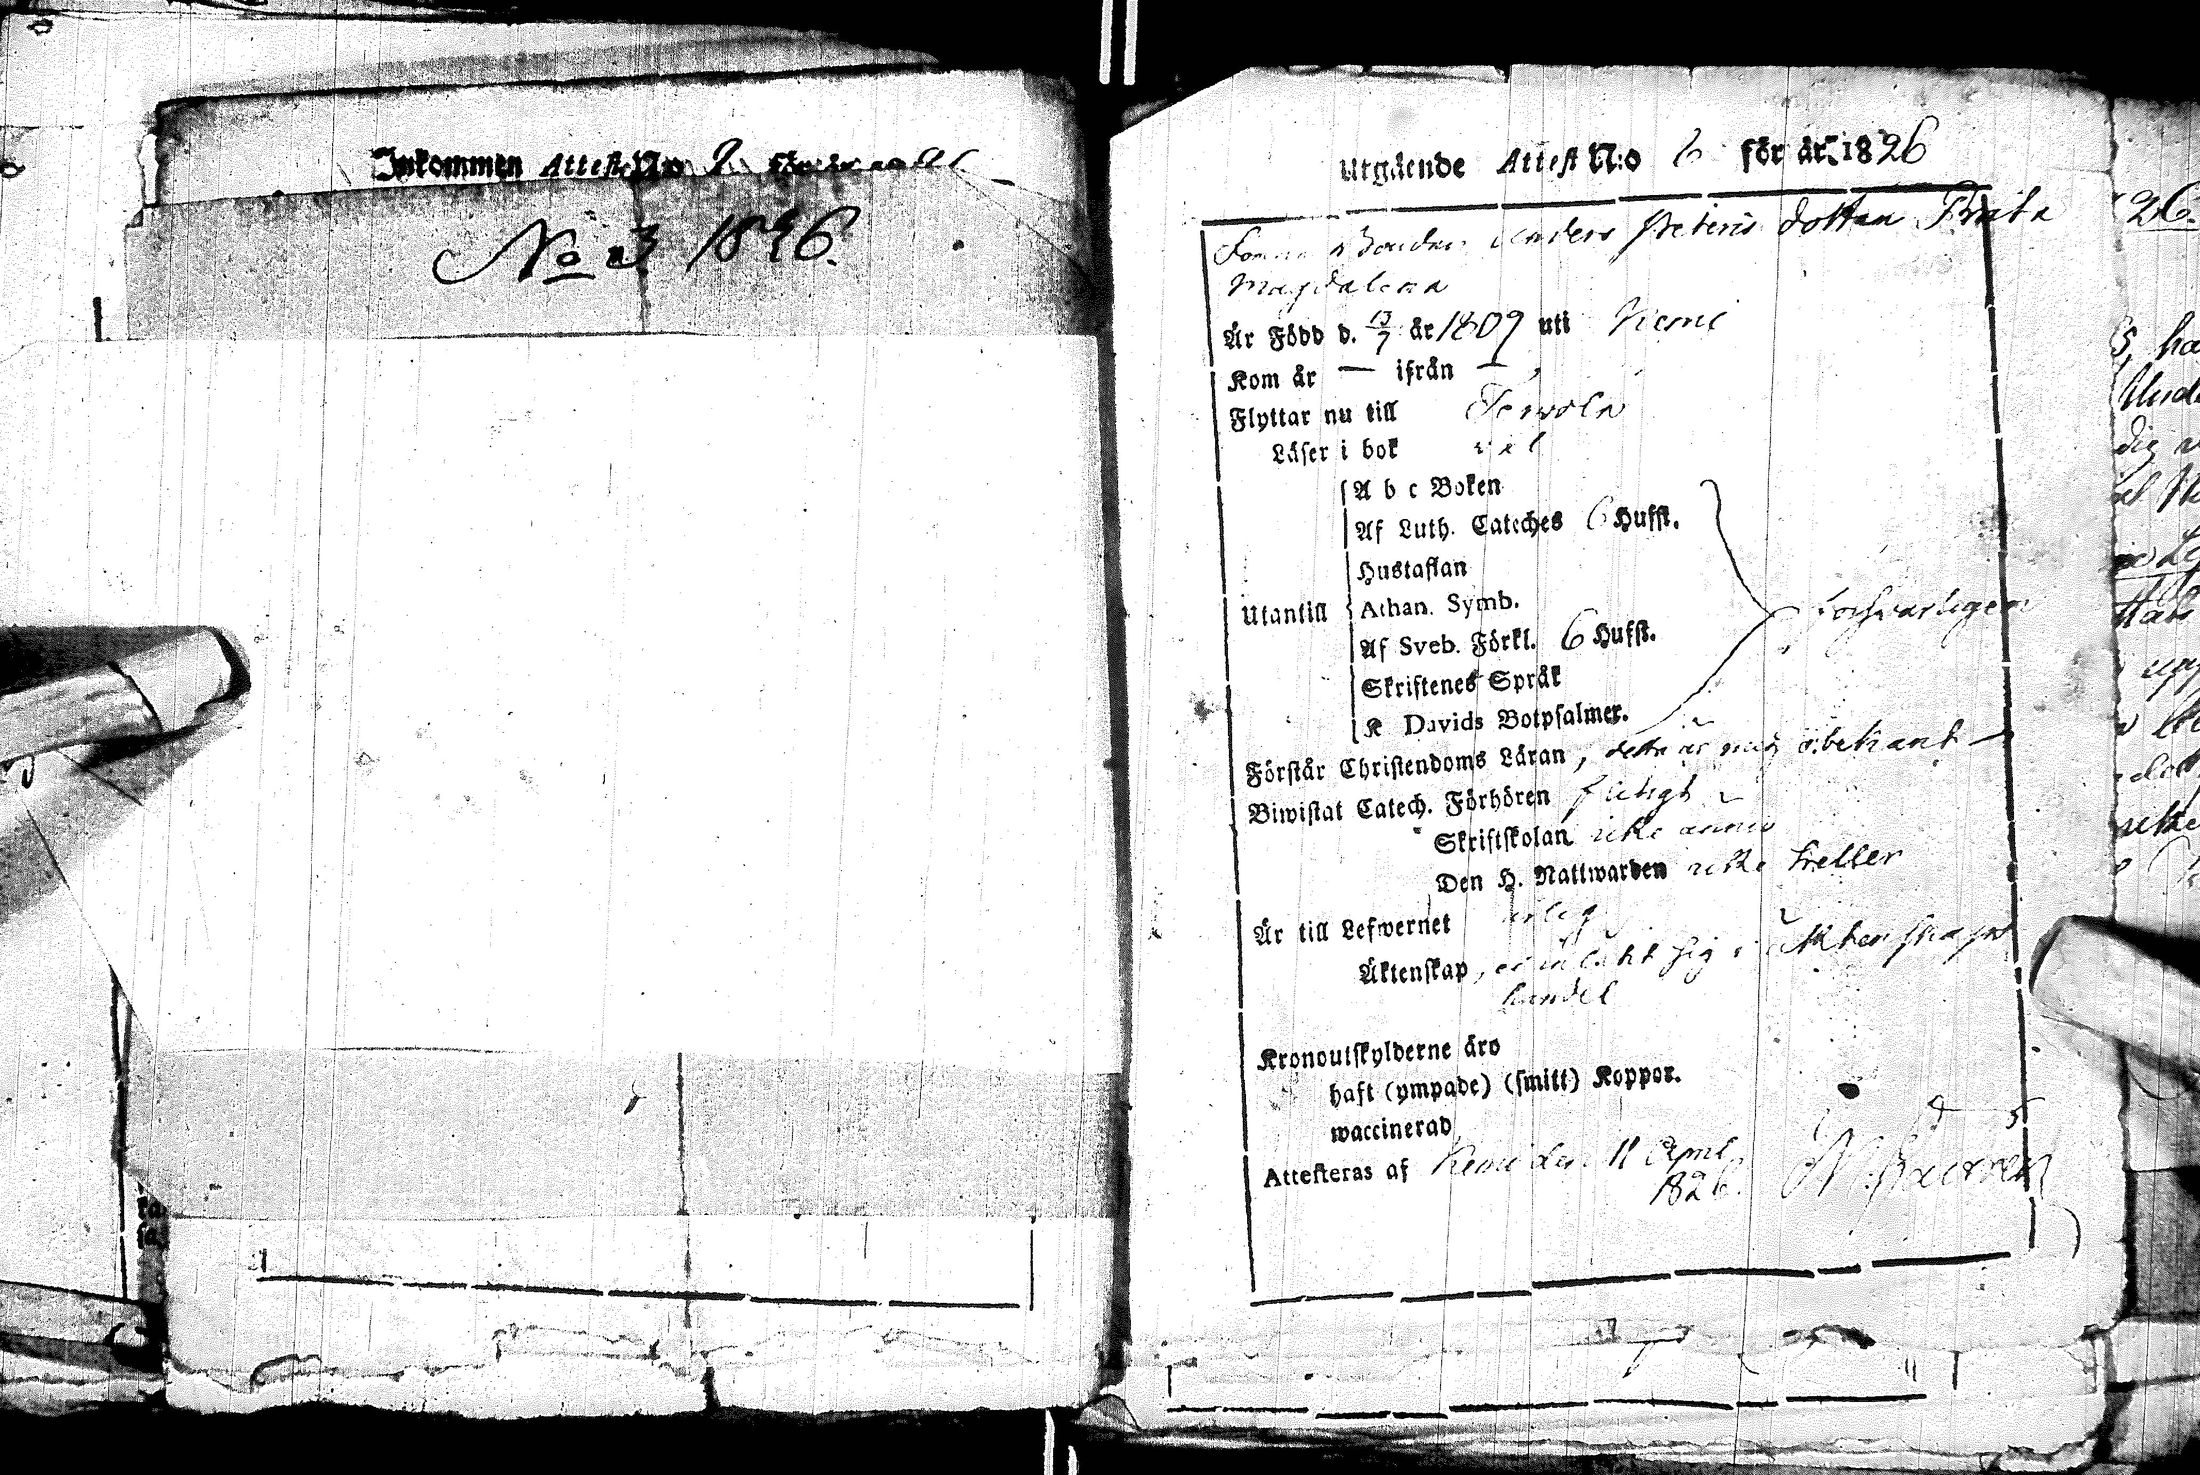 Inkommen Attest No 2
No 3 1826.
Utgående Attest N:o 6 för år 1826
Bonden Anders Peteris dotter Brita
Magdalena
Är Född d. 13/7 år 1809 uti Kemi
Kom år — ifrån —
Flyttar nu till Terwola
Läser i bok väl
A b c Boken
Af Luth. Cateches 6 Hufst.
Hustaflan
Utantill Athan. Symb. förswarligen
Af Sveb. Förkl. 6 Hufst.
Skriftenes Språk
K Davids Botpsalmer.
Förstår Christendoms Läran, detta är mig obekant
Biwistat Catech. Förhören flitigt
Skriftskolan icke ännu
Den H. Nattwarden icke heller
Är till Lefwernet ärlig
Äktenskap, ej inlåtit sig i äktenskaps
handel
Kronoutskylderne äro
haft (ympade) (smitt) Koppor.
waccinerad
Attesteras af Kemi den 11 April
1826.
26.